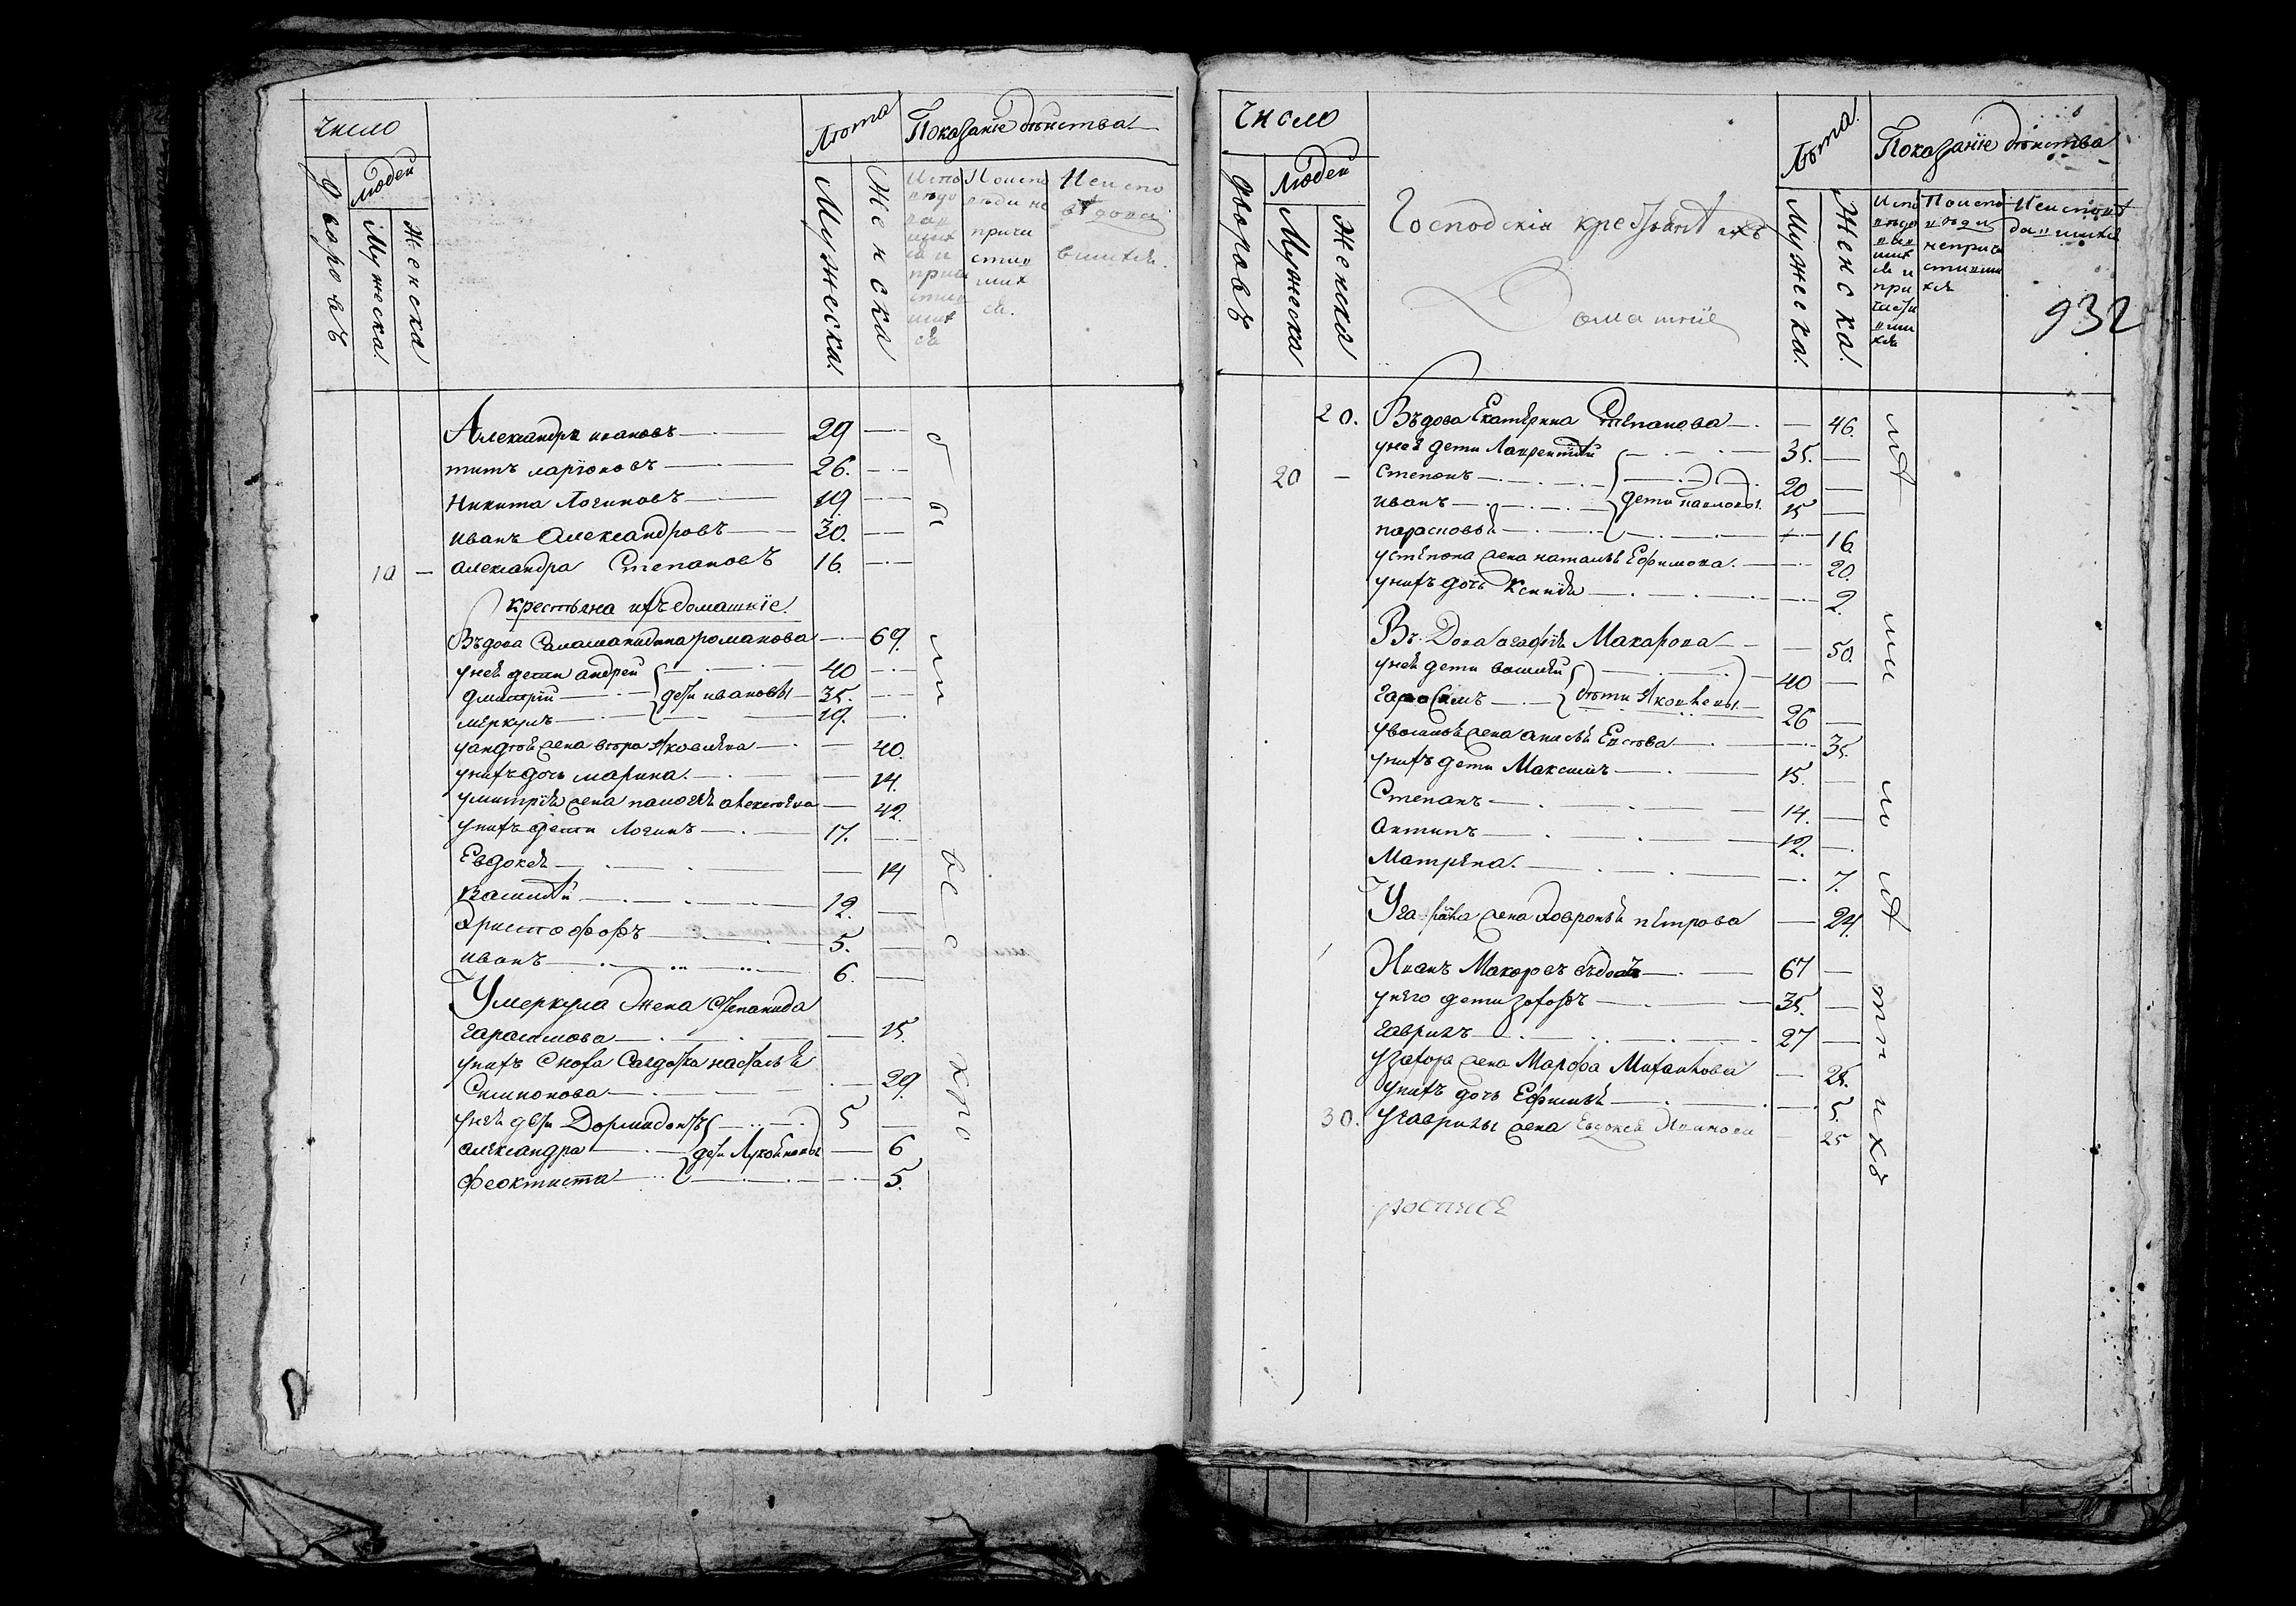 Число
Людей
Дворовъ
Мужеска
Женска
Лѣта
Мужеска
Женска
Показанїе бытства
Испо
вѣдо
вав
ших
ся и
прич
стив
ших
ся
По испо
вѣди не
причи
стив
ших
ся
Не испо
вѣдова
вшихся
Александръ ивановъ 29
титъ ларїоновъ 26
Никита Логиновъ 19
иванъ Александровъ 30
10 александра Степановъ 16
крестьяна ихъ домашнїе
Въдова Саламанидина романова 69
у неи дети андрей 40
дмитрїй дети ивановы 35
меркулъ 19
у андрея жена вера Яковлева 40
у нихъ дочь марина 14
у митрїя жена алексѣева 42
у нихъ дети Логинъ 17
Евдокея 14
Василей 12
Христофоръ 5
иванъ 6
У меркула жена Степанида
гарасимова 15
у нихъ сноха Салдатка наталья
Симионова 29
у неи дети Дормидонтъ 5
александра дети Лукоянова 6
феоктиста 5
были
вес
хро
Число
Людей
Дворовъ
Мужеска
Женска
Господскїя крестьянѣ ихъ
Домашнїе
Лѣта
Мужеска
Женска
Показанїе бытства
Испо
вѣдо
вав
ших
ся и
при
части
вши
хся
По испо
вѣди
неприча
стивши
хся
Не исповѣ
давшихся
932
20 Въдова Екатерина Степанова 46
у неи дети Лаврентїй 35
20 Степанъ 20
иванъ дети павловы 15
парасковья 16
у степана жена наталья Ефимова 20
у нихъ дочь Ксенїя 2
Въдова агафїя Макарова 50
у неи дети василей 40
гарасимъ дѣти Яковлевы 26
у василья жена анисья Евстова 35
у нихъ дети Максимъ 15
Степанъ 14
антипъ 12
Матрена 7
У гарасима жена Хавронья петрова 24
Иванъ Макаровъ въдовъ 67
у него дети захаръ 35
гаврилъ 27
у захара жена Марфа Михайлова 28
у нихъ дочь Ефимья 5
30 у гаврилы жена Евдокея Иванова 25
мѣ
ли
лѣ
тнихъ
росписе